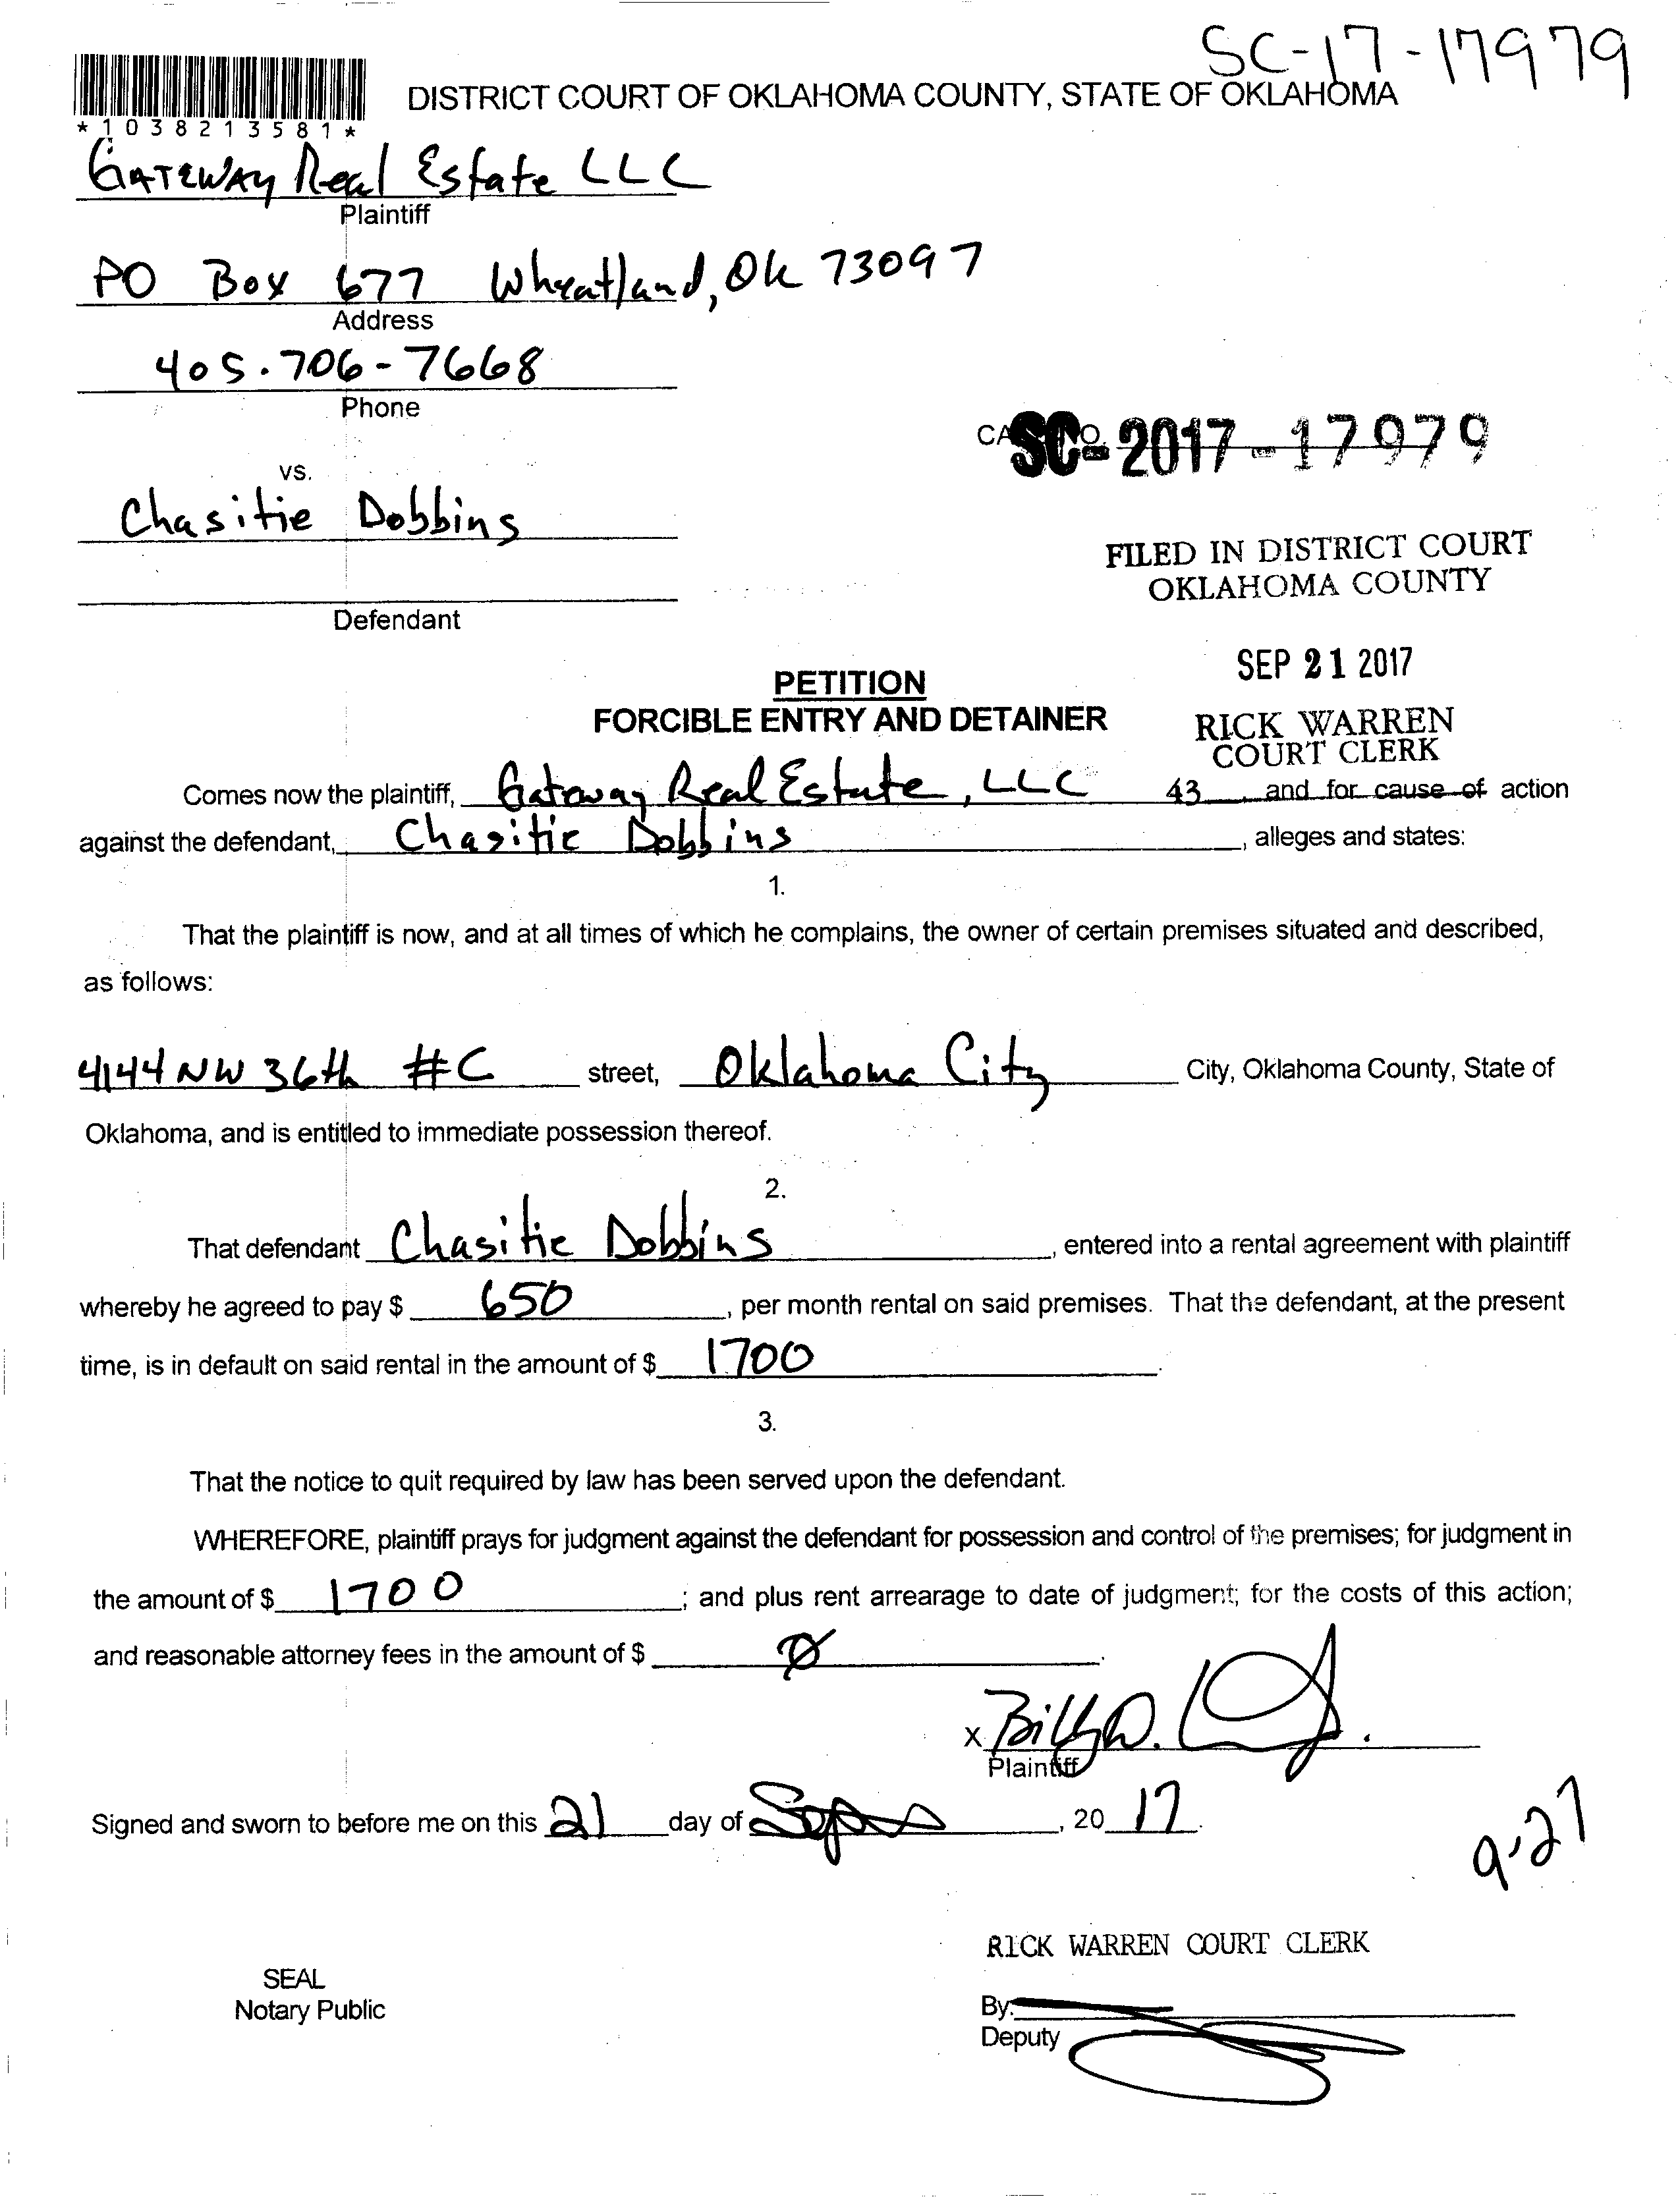 SC-17-17979
DISTRICT COURT OF OKLAHOMA COUNTY, STATE OF OKLAHOMA
*1038213581*
GATEWAY Real Estate LLC
Plaintiff
PO Box 677 Wheatland, Ok 73097
Address
405.706-7668
Phone
SC-2017-17979
vs.
Chasitie Dobbins
FILED IN DISTRICT COURT
OKLAHOMA COUNTY
Defendant
SEP 21 2017
PETITION
FORCIBLE ENTRY AND DETAINER
RICK WARREN
COURT CLERK
Comes now the plaintiff, Gateway Real Estate, LLC 43 , and for cause of action
against the defendant, Chasitie Dobbins , alleges and states:
1.
That the plaintiff is now, and at all times of which he complains, the owner of certain premises situated and described,
as follows:
4144 NW 36th #C street, Oklahoma City City, Oklahoma County, State of
Oklahoma, and is entitled to immediate possession thereof.
2.
That defendant Chasitie Dobbins , entered into a rental agreement with plaintiff
whereby he agreed to pay $ 650 , per month rental on said premises. That the defendant, at the present
time, is in default on said rental in the amount of $ 1700 .
3.
That the notice to quit required by law has been served upon the defendant.
WHEREFORE, plaintiff prays for judgment against the defendant for possession and control of the premises; for judgment in
the amount of $ 1700 ; and plus rent arrearage to date of judgment; for the costs of this action;
and reasonable attorney fees in the amount of $ Ø .
X Billy D.
Plaintiff
Signed and sworn to before me on this 21 day of , 20 17.
9-27
RICK WARREN COURT CLERK
SEAL
Notary Public
By:
Deputy